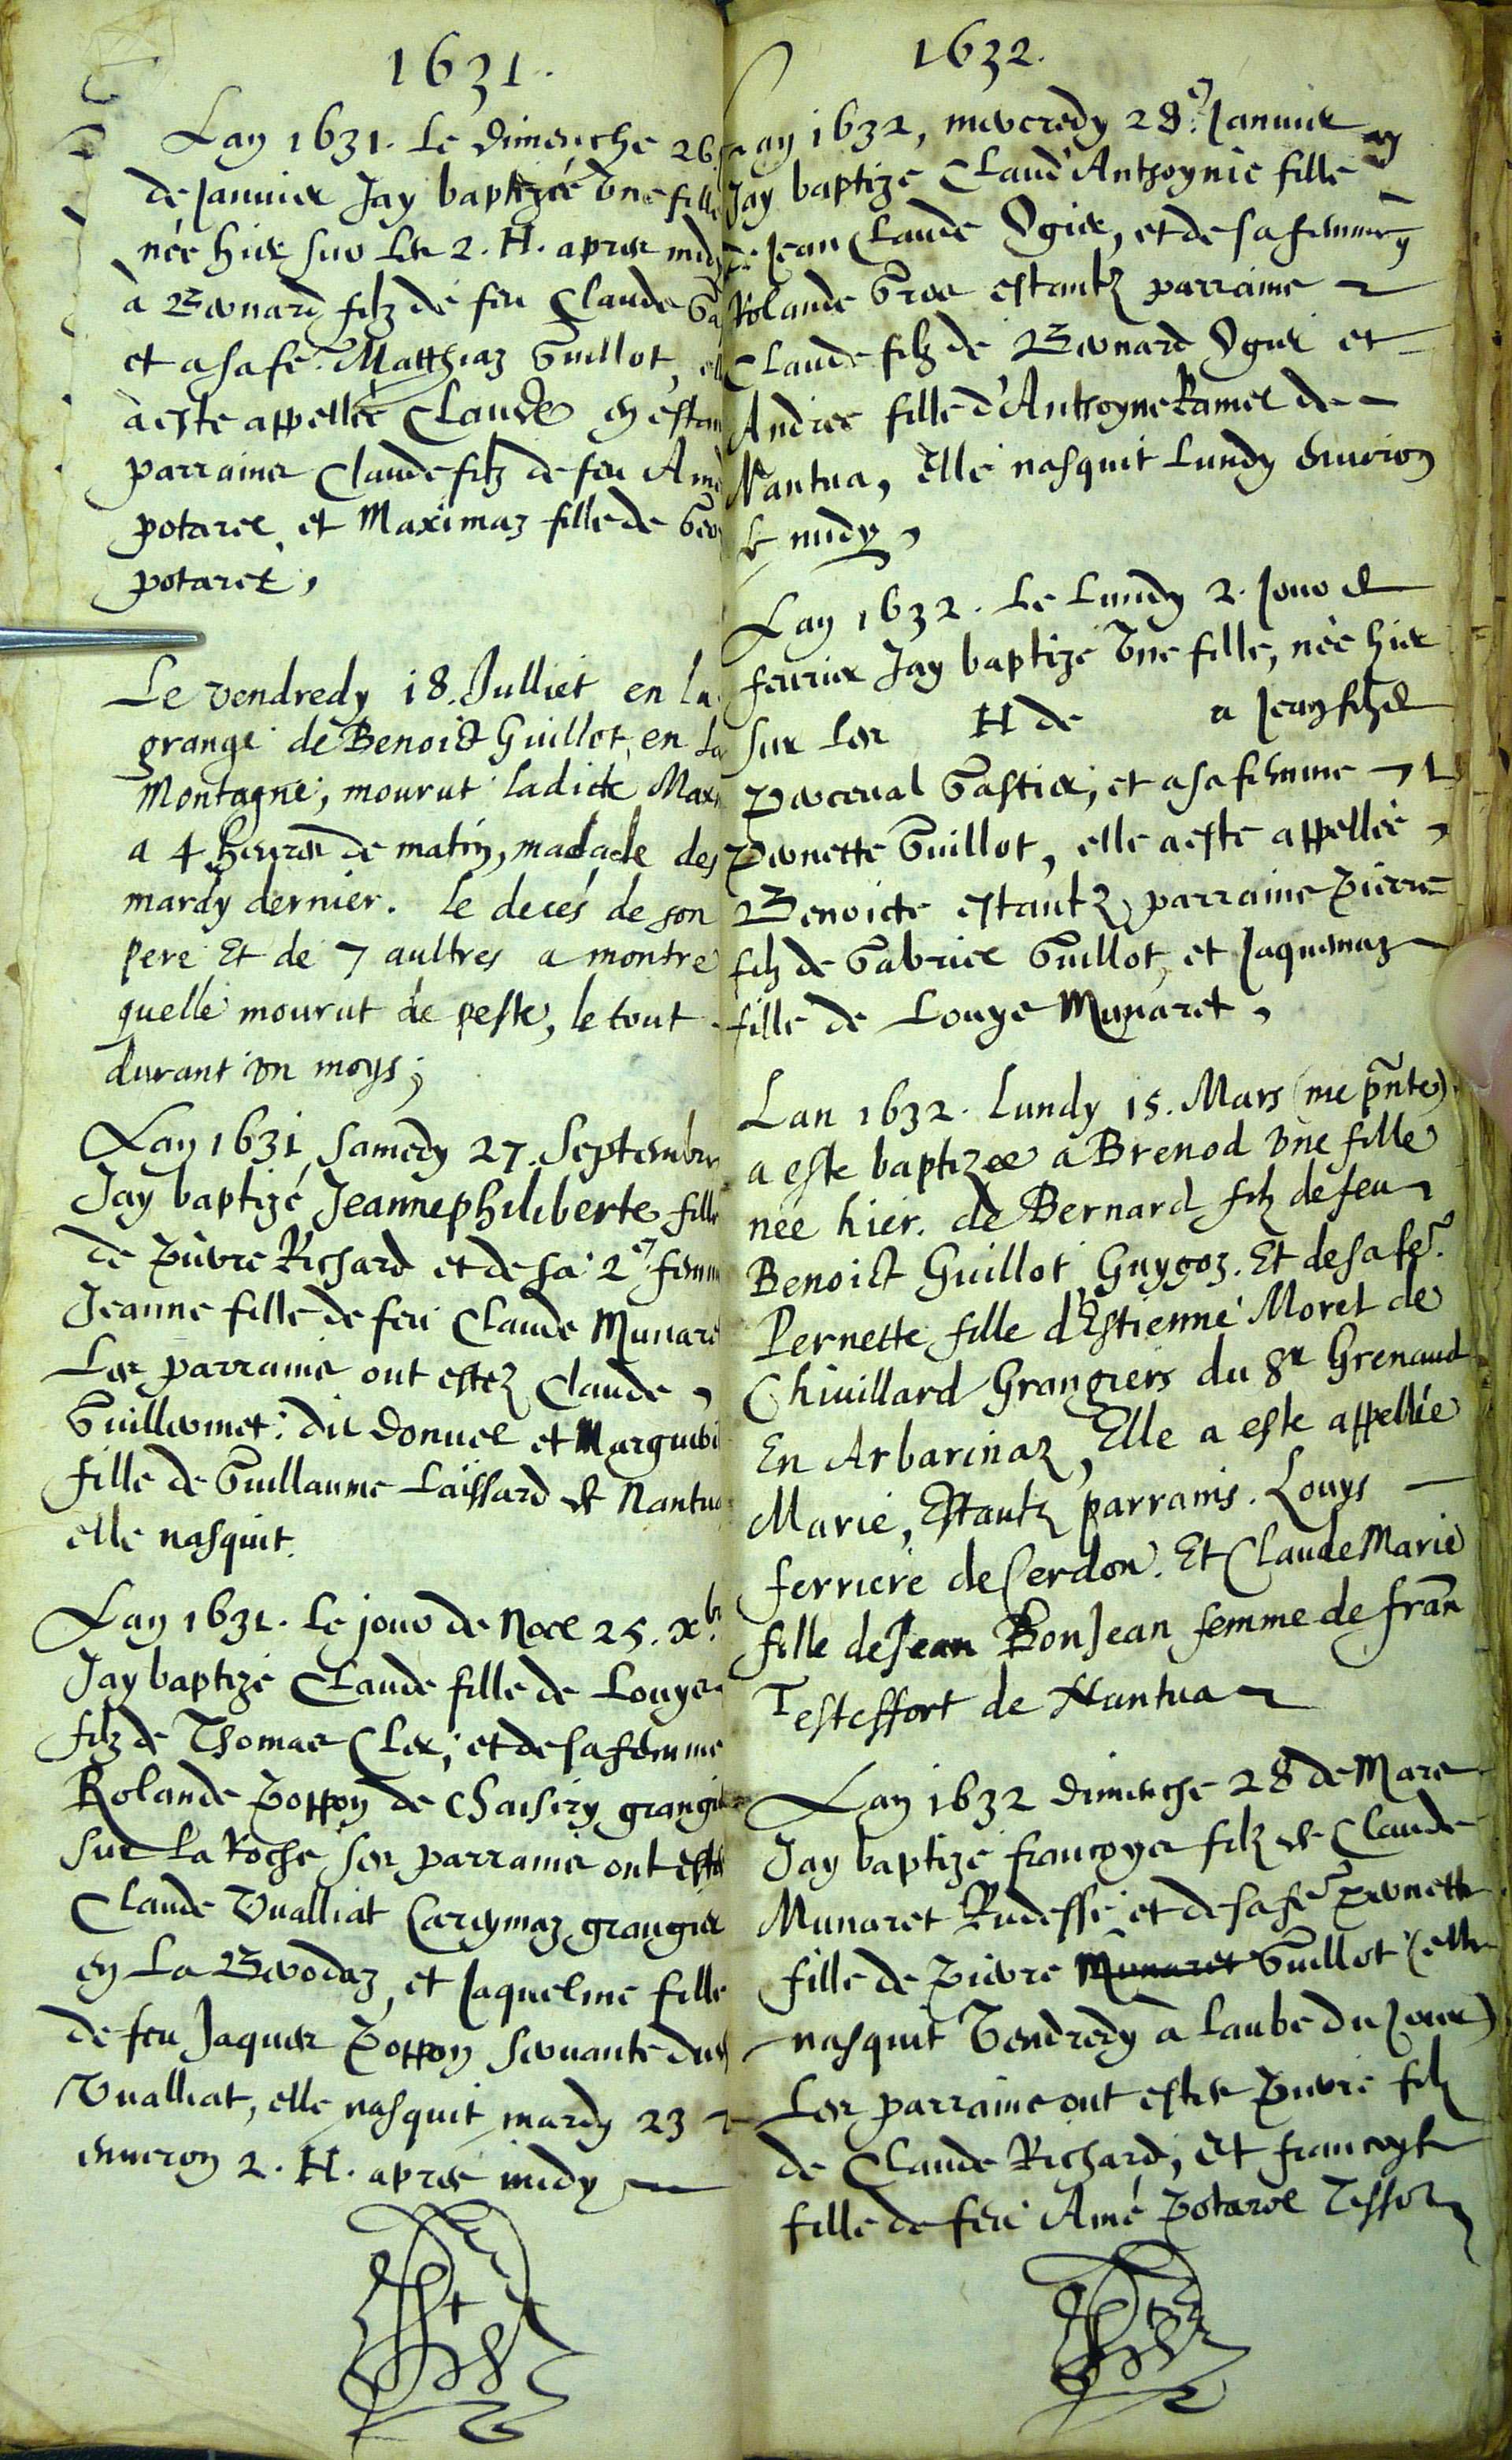 1631.
Lan 1631. Le dimenche 26.
de Januier Jay baptizée vne fille
née hier sur les 2. H. apres midy
à Bernard filz de feu Claude
et a sa fe. Matthiaz Guillot,
à este appellée Claude en estan
parrains Claude filz de feu Amé
potarel, et Maximaz fille de
potarel,
Le vendredy 18. Julliet en la
grange de Benoict Guillot, en la
Montagne, mourut ladicte Max
a 4 heures de matin, madade des
mardy dernier. le decés de son
pere Et de 7 aultres a montre
quelle mourut de peste, le tout
durant vn moys;
Lan 1631, samedy 27. Septembre
Jay baptizé Jeannephiliberte fille
de Pierre Richard et de sa 2e femm
Jeanne fille de feu Claude Munare
Les parrains ont estez Claude,
Guillermet: dit donuel et Margueri
fille de Guillaume Laissard de Nantua
elle nasquit.
Lan 1631. Le jour de Noel 25. Xbr.
Jay baptizé Claude fille de Louys
filz de Thomas Cler, et de sa femme
Rolande Poppon de Chaisiry grangie
sur La Roche ses parrains ont este
Claude Vualliat Carrymaz grangier
en La Berodaz, et Jaqueline fille
de feu Jaques Poppon seruante du
Vualliat, elle nasquit mardy 23
enuiron 2. H. apres midy
1632.
Lan 1632, mercredy 28e Januier
Jay baptizé Claud'Anthoynie fille
de Jean Claude Ogier, et de sa femme
Rolande Gros estantz parrains
Claude filz de Bernard Ogier et
Andree fille d'Anthoyne Ramel de
Nantua, Elle nasquit Lundy enuiron
le midy,
Lan 1632. Le Lundy 2. Jour de
feurier Jay baptizé vne fille, née hier
sur les H de a Jean filz de
Perceual Gastier, et a sa femme
Pernette Guillot, elle a este appellée,
Benoicte estantz parrains Pierre
filz de Gabriel Guillot, et Jaquemaz
fille de Louys Munaret,
Lan 1632. Lundy 15. Mars (me pnte)
a este baptizee a Brenod vne fille
nee hier. de Bernard filz de feu
Benoict Guillot Guygoz. Et de sa fe.
Pernette fille d'Estienne Morel de
Chiuillard Grangiers du Sr Grenaud
En Arbarinaz, Elle a este appellée
Marie, Estantz parrains. Louys
ferriere de Cerdon. Et ClaudeMarie
fille de Jean BonJean femme de fran
Testeffort de Nantua
Lan 1632 dimenche 28 de Mars
Jay baptizé francoyes filz de Claude
Munaret Rudesse et de sa fe Pernette
fille de Pierre Munaret Guillot (elle
nasquit Vendredy à laube du Jour)
Les parrains ont estes Pierre filz
de Claude Richard, et francoyse
fille de feu Amé Potarel Tessot